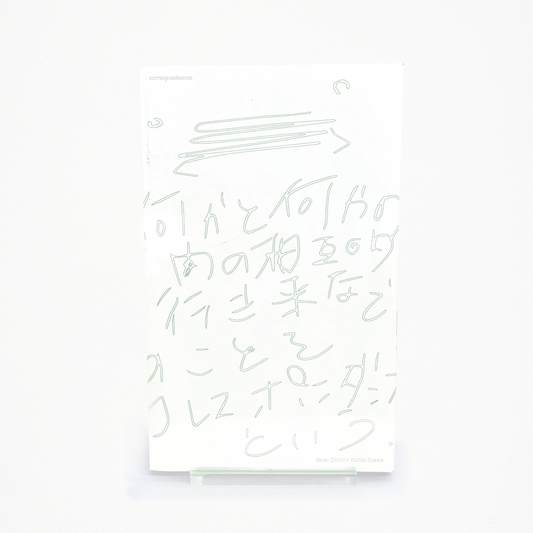 correspondances
何かと何かの
内の相互的
行き来なで
のことを
コレスポンダンス
という